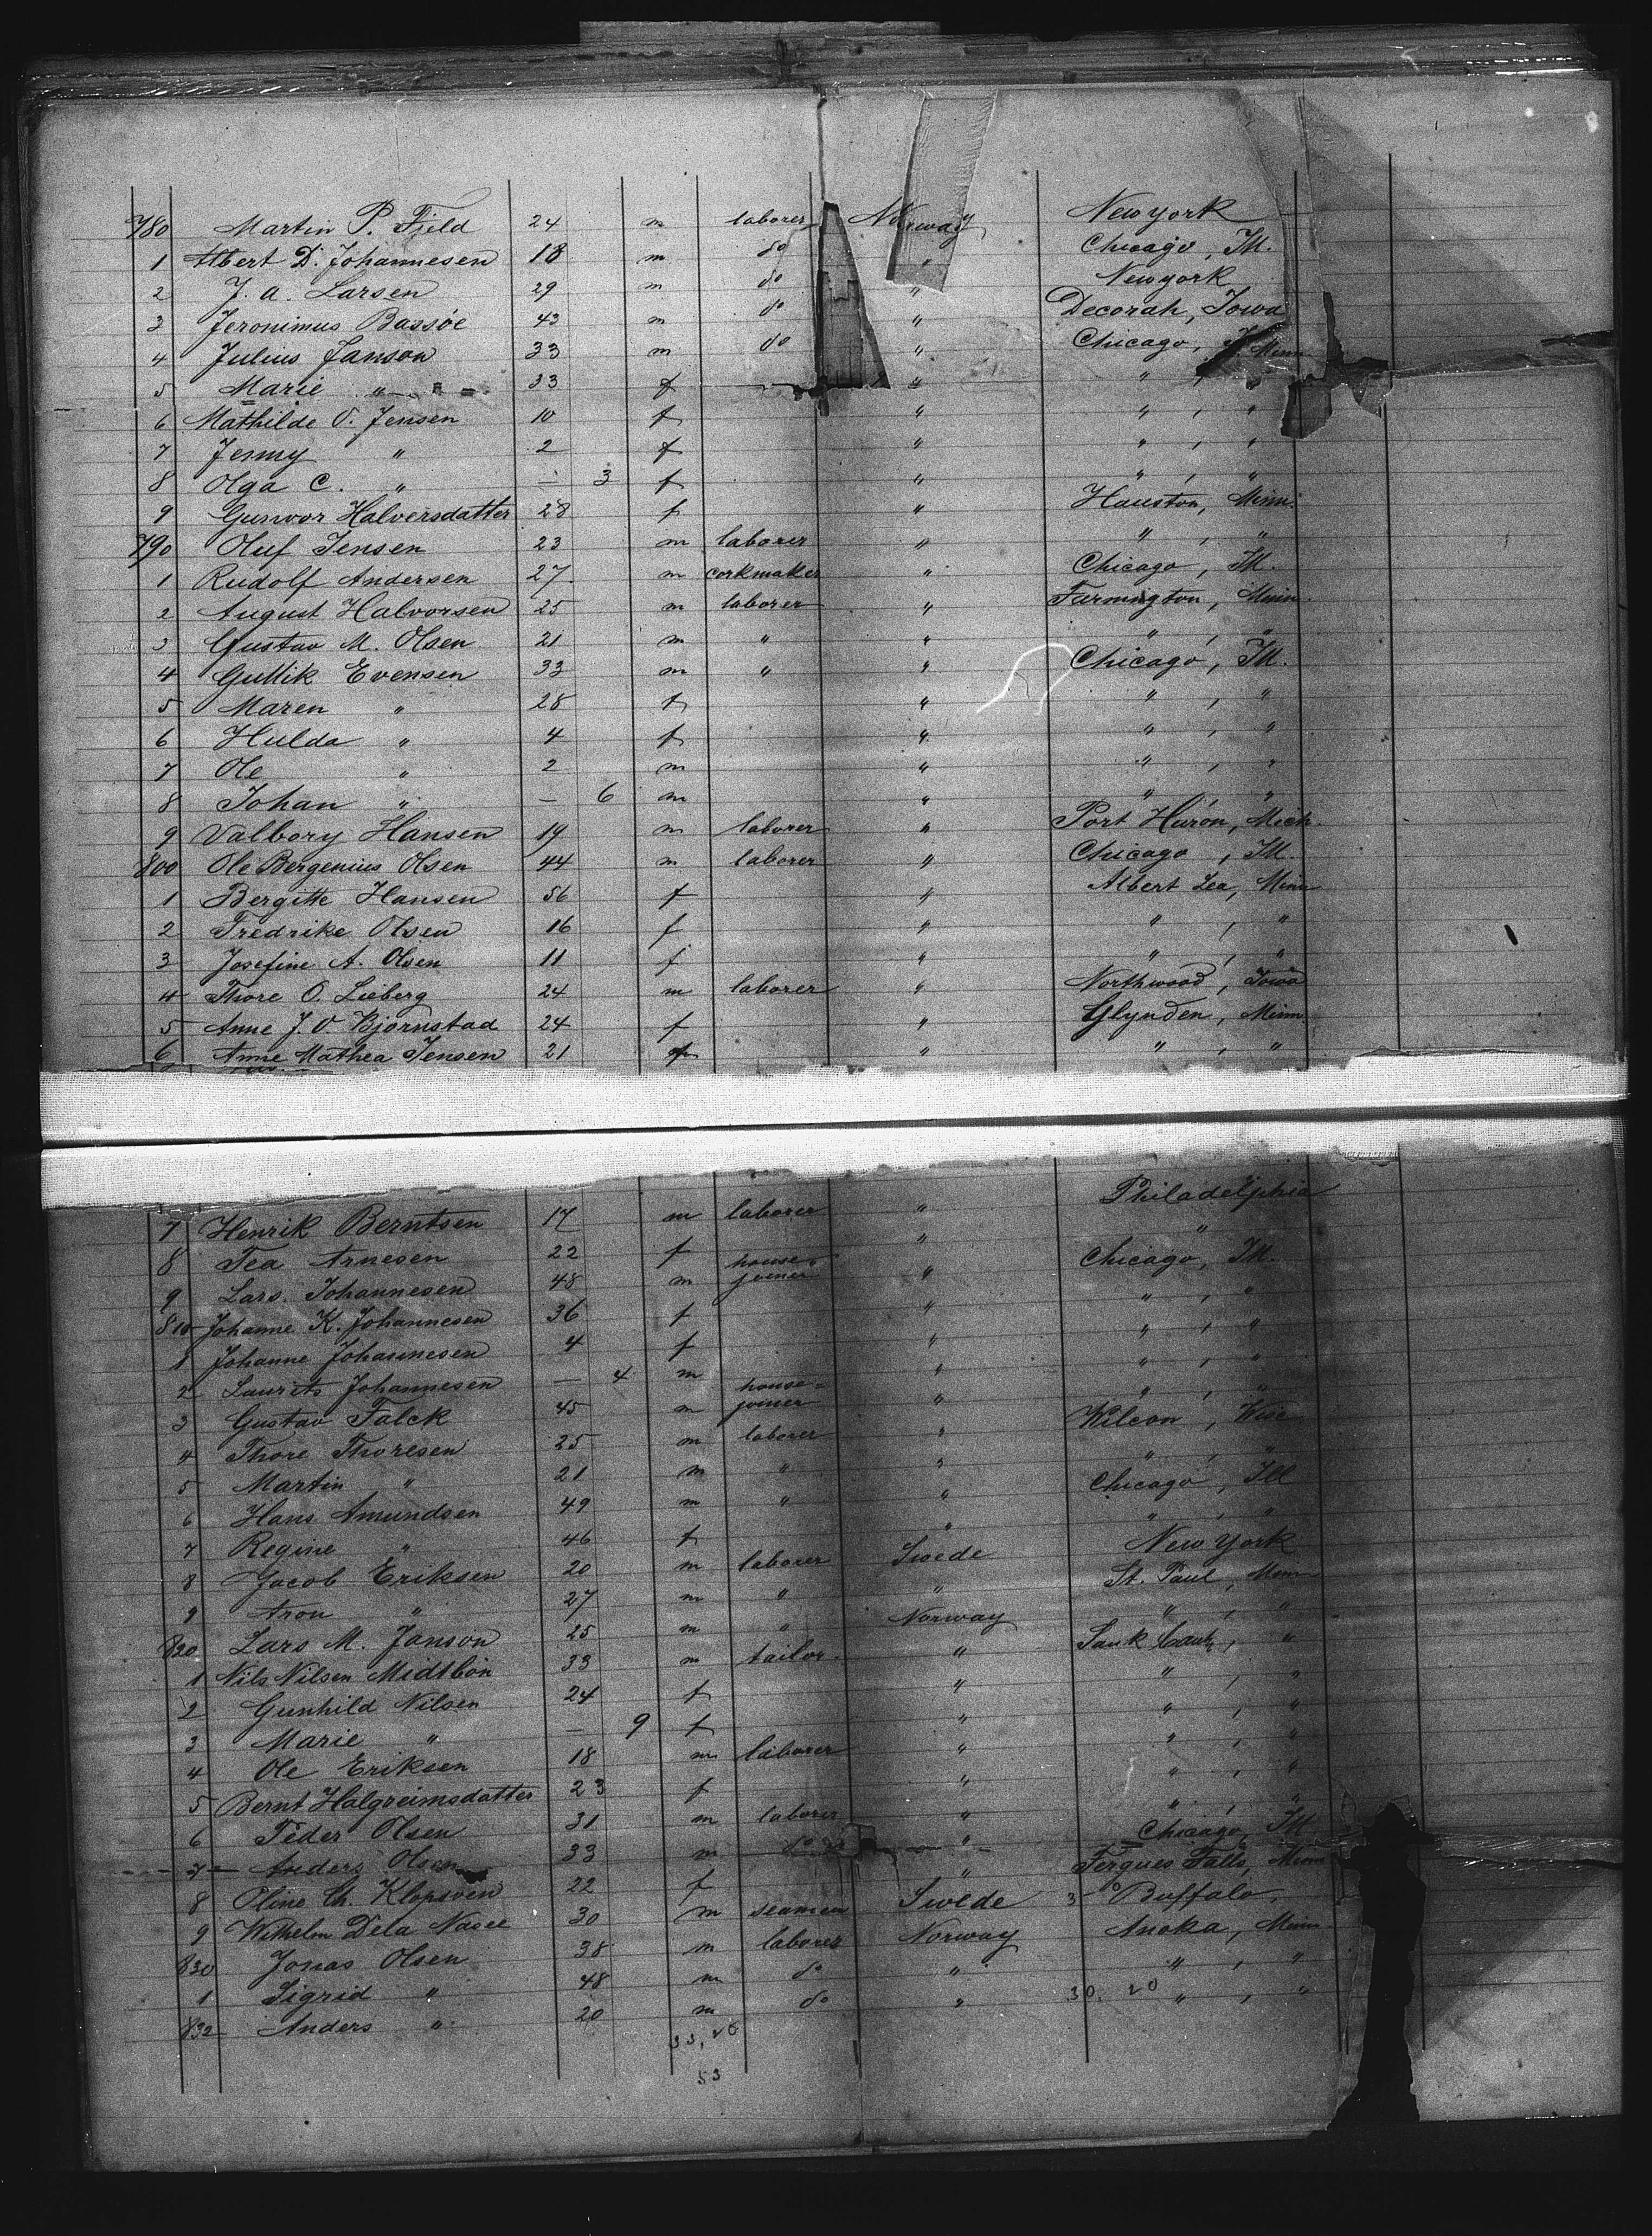 780 Martin P. Fjeld 24 m laborer Norway New york
1 Albert D. Johannesen 18 m do " Chicago, Ill.
2 J. A. Larsen 29 m do " New york
3 Jeronimus Bassöe 43 m do " Decorah, Iowa
4 Julius Janson 33 m do " Chicago, Minn
5 Marie " 33 f " " , "
6 Mathilde O. Jensen 10 f " " , "
7 Jenny " 2 f " " , "
8 Olga C. " — 3 f " " , "
9 Gunvor Halversdatter 28 f " Hauston, Minn.
790 Oluf Jensen 23 m laborer " " , "
1 Rudolf Andersen 27 m corkmaker " Chicago, Ill.
2 August Halvorsen 25 m laborer " Farmington, Minn.
3 Gustav M. Olsen 21 m " " " , "
4 Gullik Evensen 33 m " " Chicago, Ill.
5 Maren " 28 f " " , "
6 Hulda " 4 f " " , "
7 Ole " 2 m " " , "
8 Johan " — 6 m " " , "
9 Valbory Hansen 19 m laborer " Port Huron, Mich.
800 Ole Bergenius Olsen 44 m laborer " Chicago, Ill.
1 Bergitte Hansen 56 f " Albert Lea, Minn
2 Fredrike Olsen 16 f " " , "
3 Josefine A. Olsen 11 f " " , "
4 Thore O. Lieberg 24 m laborer " Northwood, Iowa
5 Anne J. O. Bjornstad 24 f " Glynden, Minn.
6 Anne Mathea Jensen 21 f " " , "
7 Henrik Berntsen 17 m laborer " Philadelphia
8 Tea Arnesen 22 f " "
9 Lars Johannesen 48 m house-joiner " Chicago, Ill.
810 Johanne K. Johannesen 36 f " " , "
1 Johanne Johannesen 4 f " " , "
2 Laurits Johannesen — 4 m " " , "
3 Gustav Falck 45 m house-joiner " " , "
4 Thore Thoresen 25 m laborer " Wilcon, Wise
5 Martin " 21 m " " " , "
6 Hans Amundsen 49 m " " Chicago, Ill
7 Regine " 46 f " " , "
8 Jacob Eriksen 20 m laborer Swede New York
9 Aron " 27 m " " St. Paul, Minn
820 Lars M. Janson 25 m " Norway " , "
1 Nils Nilsen Midtbön 33 m tailor " Sauk , "
2 Gunhild Nilsen 24 f " " , "
3 Marie " — 9 f " " , "
4 Ole Eriksen 18 m laborer " " , "
5 Bernt Halgreimsdatter 23 f " " , "
6 Peder Olsen 31 m laborer " " , "
7 Anders Olsen 33 m do " Chicago, Ill
8 Oline Ch. Klopsven 22 f " Fergues Falls, Minn
9 Wilhelm Dela Nasee 30 m seamen Swede Buffalo,
830 Jonas Olsen 38 m laborer Norway Anoka, Minn.
1 Sigrid " 48 m do " " , "
832 Anders " 20 m do " 30. 20 " , "
33, 20
53